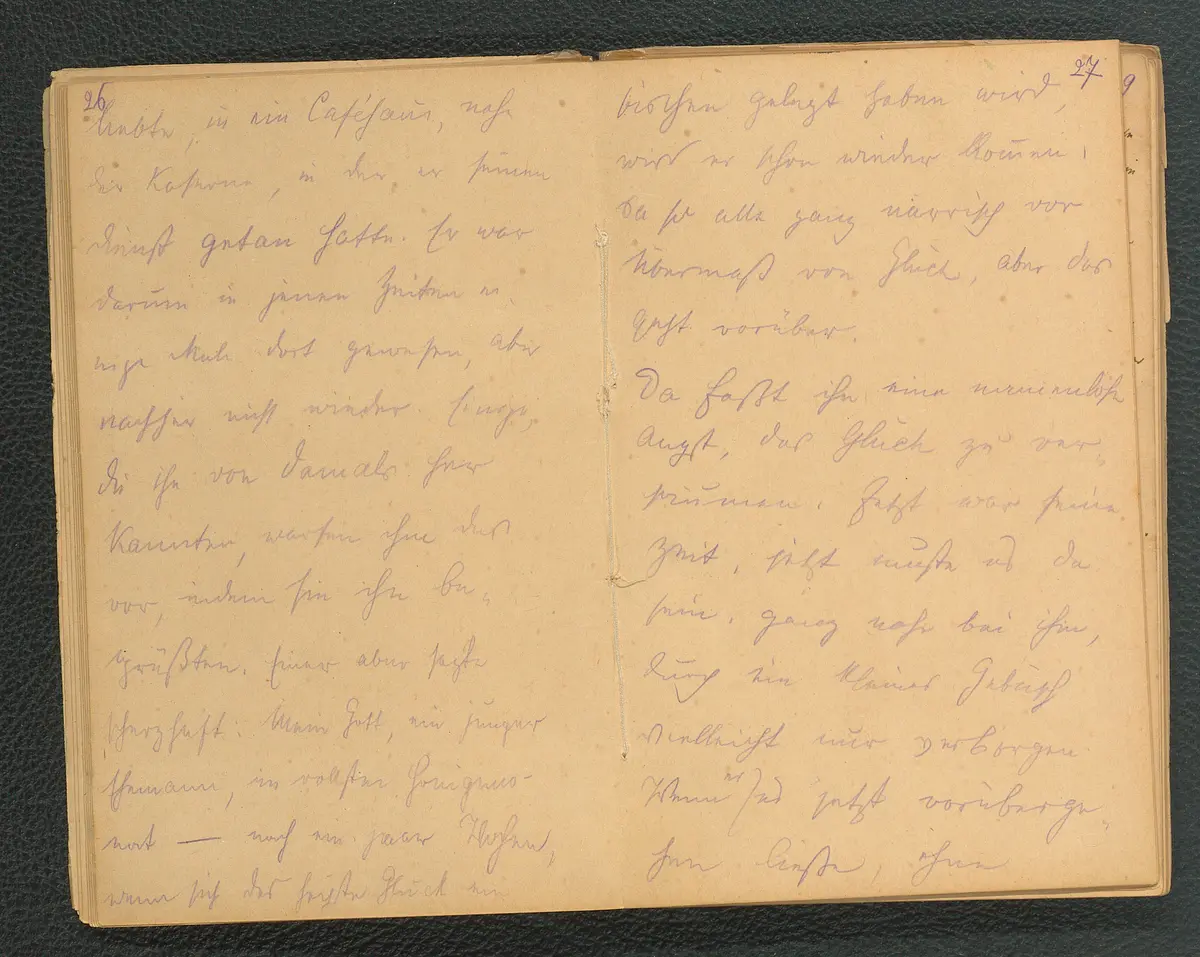 26
liebte, in ein Caféhaus, nahe
der Kaserne, in der er seinen
Dienst getan hatte. Er war
darum in jenen Zeiten ei
nige Male dort gewesen, aber
nachher nicht wieder. Einige,
die ihn von damals her
kannten, warfen ihm das
vor, indem sie ihn be-
grüßten. Einer aber sagte
scherzhaft: Mein Gott, ein junger
Ehemann, in vollsten Honigmo-
nat — nach ein paar Wochen,
wenn sich das heißste Glück ein
27
bischen gelegt haben wird,
wird er schon wieder kom̅en.
Da ist alle ganz närrisch vor
Übermaß von Glück, aber das
geht vorüber.
Da faßt ihn eine namenlose
Angst, das Glück zu ver-
säumen. Jetzt war seine
Zeit, jetzt mußte es da
sein, ganz nahe bei ihm,
durch ein kleines Gebüsch
vielleicht nur verborgen.
Wenn er es jetzt vorüberge-
hen ließe, ohne
9